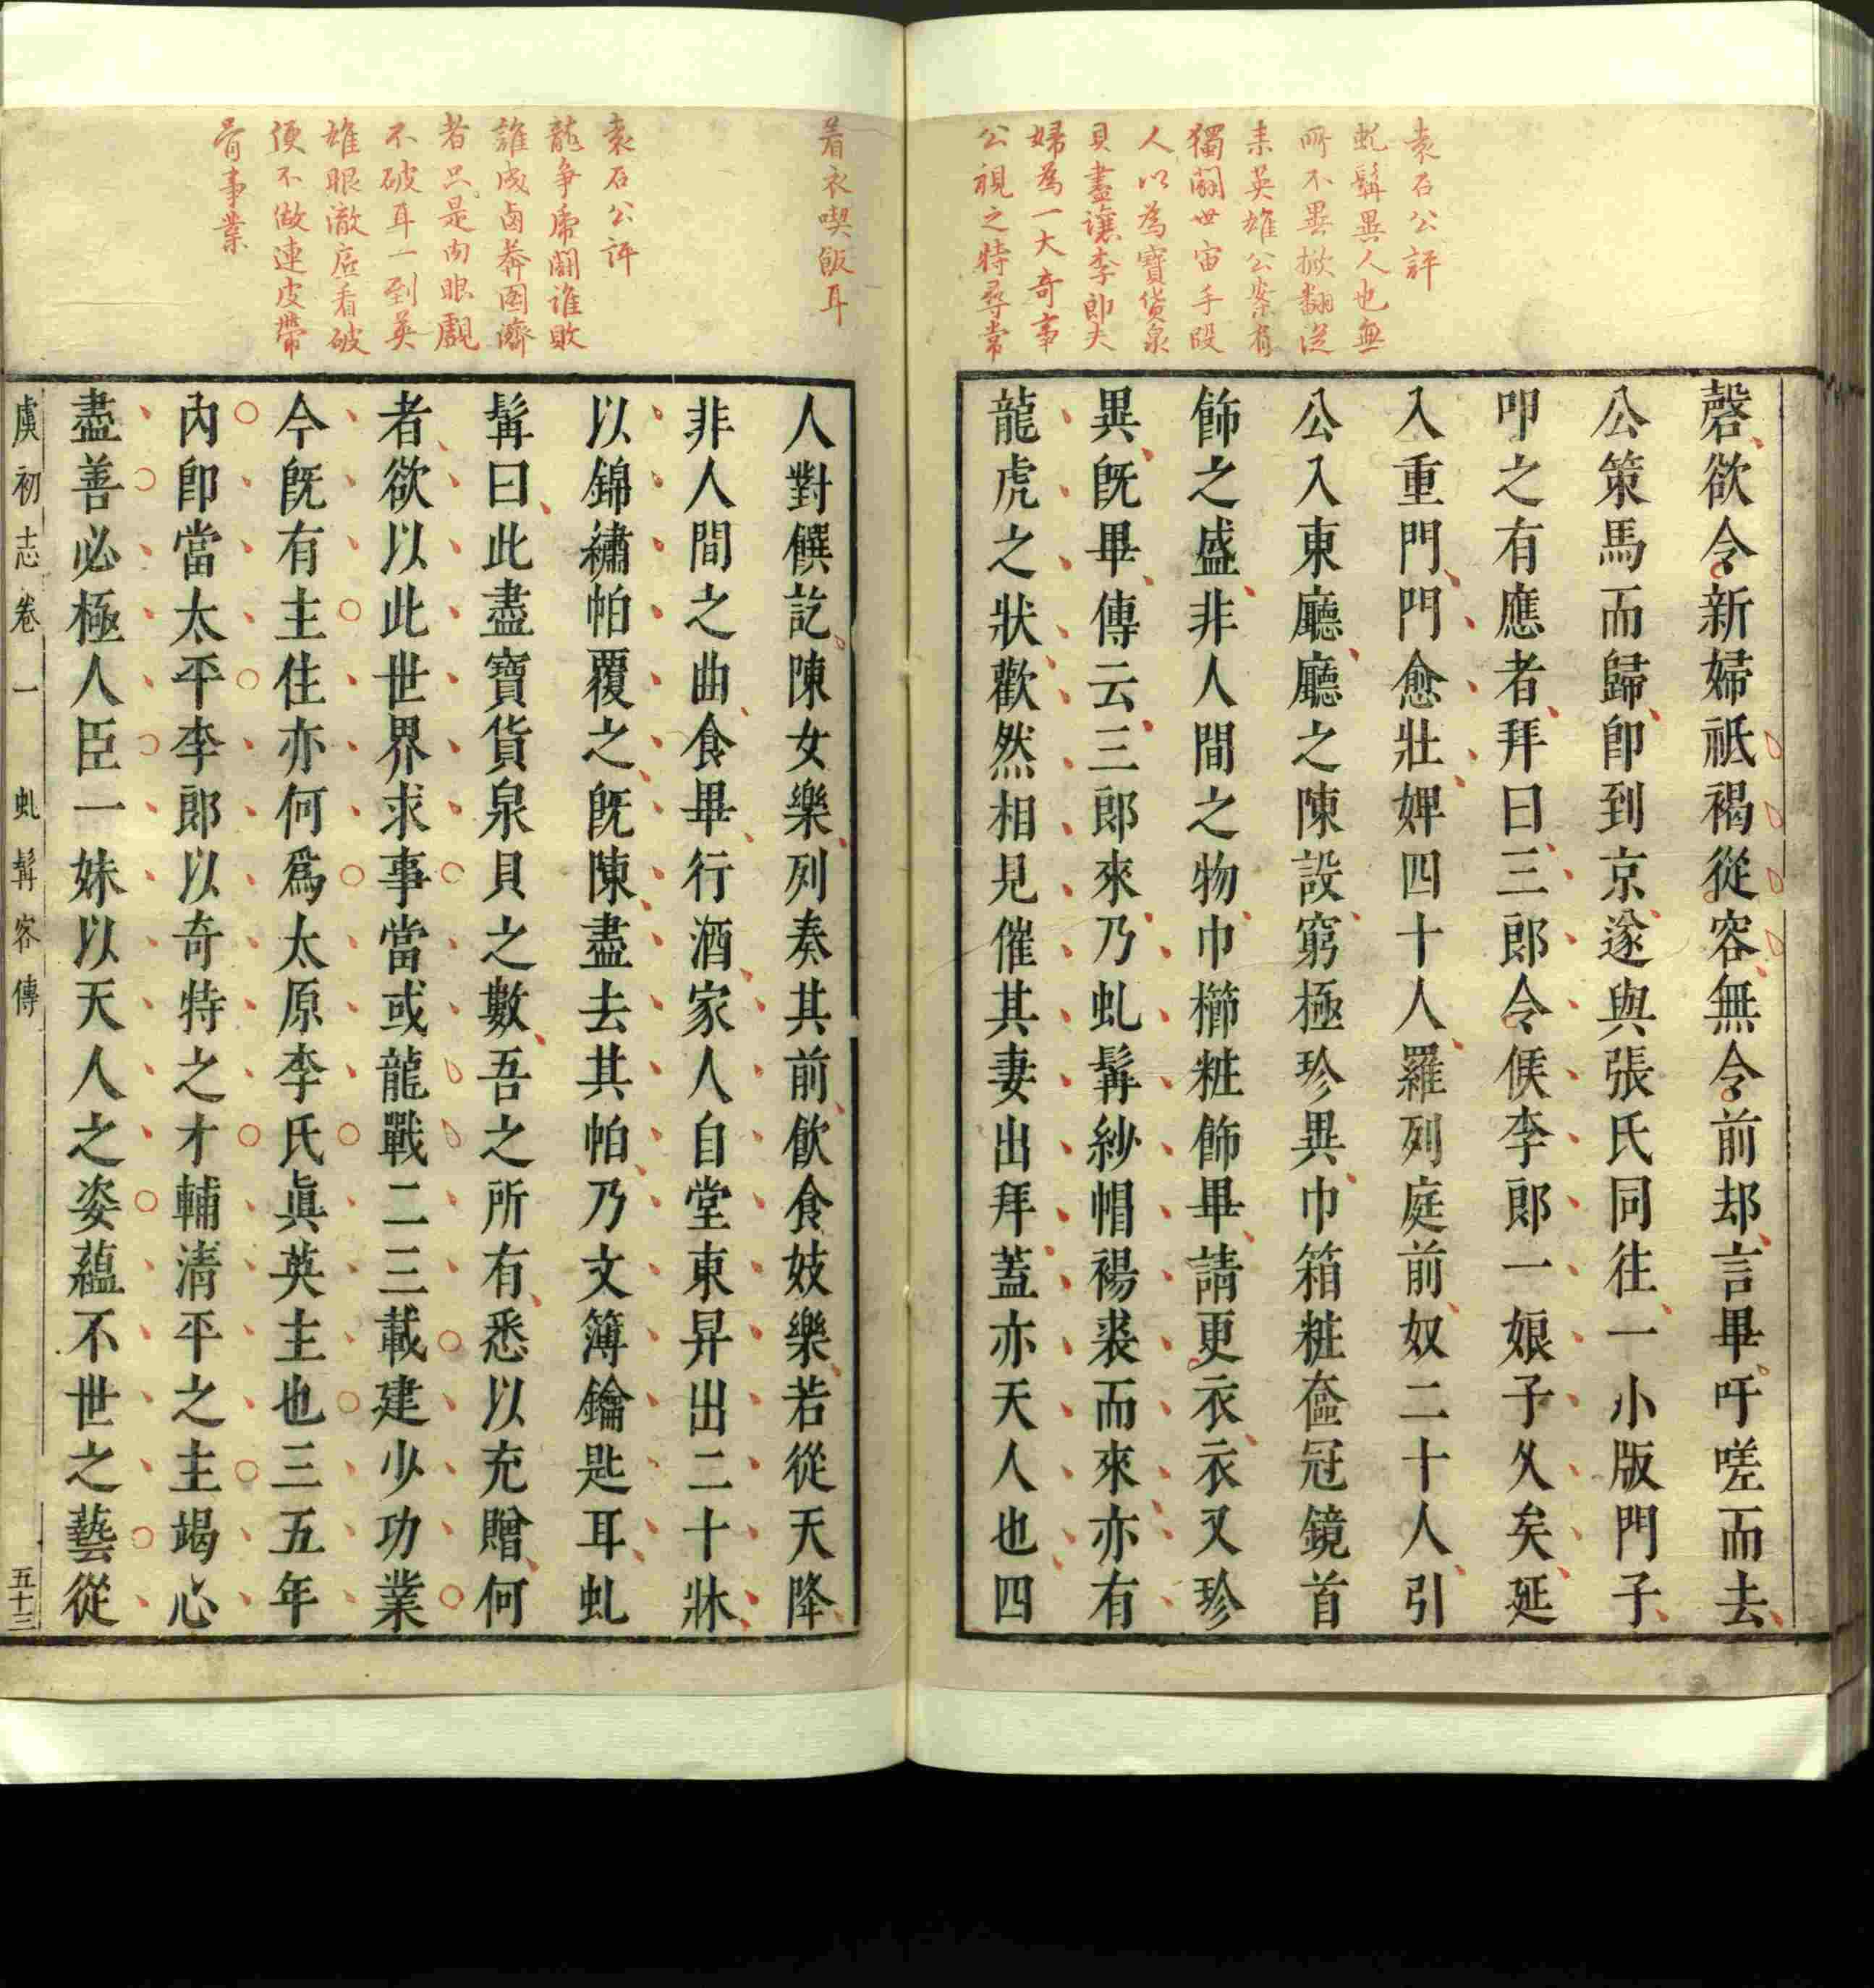 袁石公評
虬髯異人也無
所不異掀翻從
來英雄公案有
獨闢世宙手段
人以為寶貨泉
貝盡讓李郎夫
婦為一大奇事
公視之特尋常
磬欲令新婦祗褐從容無令前却言畢吁嗟而去
公策馬而歸卽到京遂與張氏同往一小版門子
叩之有應者拜曰三郎令候李郎一娘子久矣延
入重門門愈壯婢四十人羅列庭前奴二十人引
公入東廳廳之陳設窮極珍異巾箱粧奩冠鏡首
飾之盛非人間之物巾櫛粧飾畢請更衣衣又珍
異旣畢傳云三郎來乃虬髯紗帽裼裘而來亦有
龍虎之狀歡然相見催其妻出拜蓋亦天人也四
着衣喫飯耳
袁石公評
龍爭虎鬪誰敗
誰成鹵莽困濟
者只是肉眼覷
不破耳一到英
雄眼澈底看破
便不做連皮帶
骨事業
人對饌訖陳女樂列奏其前飲食妓樂若從天降
非人間之曲食畢行酒家人自堂東舁出二十牀
以錦繡帕覆之旣陳盡去其帕乃文簿鑰匙耳虬
髯曰此盡寶貨泉貝之數吾之所有悉以充贈何
者欲以此世界求事當或龍戰二三載建少功業
今旣有主住亦何爲太原李氏眞英主也三五年
內卽當太平李郎以奇特之才輔清平之主竭心
盡善必極人臣一妹以天人之姿蘊不世之藝從
虞初志卷一 虬髯客傳 五十三